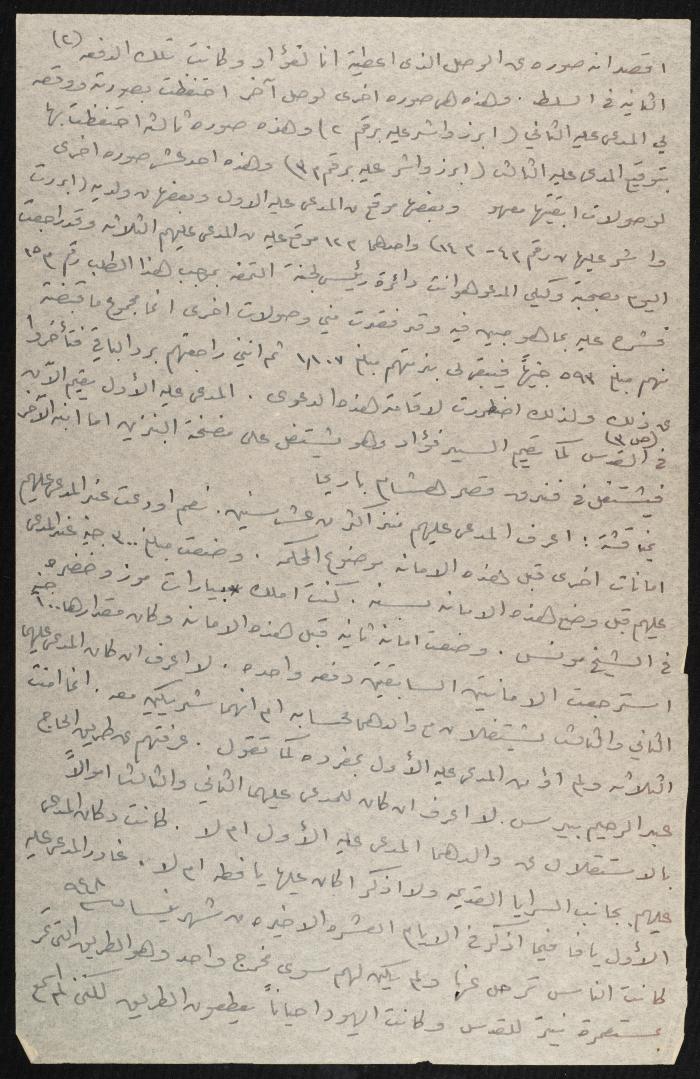 (٢)
اقصد انه صوره عن الوصل الذي اعطيته انا لفؤاد وكانت تلك الدفعه
الثانيه في السلط . وهذه هي صوره اخرى لوصل آخر احتفظت بصورته ووقعه
لي المدعى عليه الثاني (ابرز واشر عليه برقم ٢) وهذه صوره ثالثه احتفظت بها
بتوقيع المدعى عليه الثالث (ابرز واشر عليه برقم ٣) وهذه احد عشر صوره اخرى
لوصولات ابقيتها معهم وبعضها موقع من المدعى عليه الاول وبعضها من ولديه (ابرزت
واشر عليها من رقم ٤ - ١٤) واحدهما موقع عليه من المدعى عليهم الثلاثه وقد راجعت
اليوم بصحبة وكيلي المدعو دائرة رئيس لجنة التمغه بموجب هذا الطلب رقم
فشرح عليه بما هو مبين فيه وقد فقدت مني وصولات اخرى انما مجموع ما قبضته
منهم مبلغ ٥٩٣ جنيهاً فيبقى لي بذمتهم مبلغ ١١٠٧ ثم انني راجعتهم برد الباقي فتأخروا
عن ذلك ولذلك اضطررت لاقامة هذه الدعوى . المدعى عليه الأول يقيم الآن
(ص ٣)
في القدس كما يقيم السيد فؤاد وهو يشتغل على مضخة البنزين اما ابنه الآخر
فيشتغل في فندق قصر هشام باريحا
مناقشة : اعرف المدعى عليهم منذ اكثر من عشر سنين . نعم اودعت عند المدعى عليهم
امانات اخرى قبل هذه الامانه موضوع المحكمه . وضعت مبلغ ٣٠٠ جنيه عند المدعى
عليهم قبل وضع هذه الامانه بسنه . كنت املك بيارات موز وخضره
في الشيخ مونس . وضعت امانه ثانيه قبل هذه الامانه وكان مقدارها ١٠٠ جنيه
استرجعت الامانتين السابقتين دفعه واحده . لا اعرف ان كان المدعى عليهما
الثاني والثالث يشتغلان مع والدهما بحسابه ام انهما شريكين معه . انما امنت
الثلاثه ولم اؤمن المدعى عليه الأول بمفرده كما تقول . عرفتهم عن طريق الحاج
عبد الرحيم بيبرس . لا اعرف ان كان للمدعى عليهما الثاني والثالث اموالاً
بالاستقلال عن والدهما المدعى عليه الأول ام لا . كانت دكان المدعى
عليهم بجانب السرايا القديمه ولا اذكر اكان عليها يافطه ام لا . غادر المدعى عليه
الأول يافا فيما اذكر في الايام العشره الاخيره من شهر نيسان سنة ٩٤٨
كانت الناس ترحل عنها ولم يكن لهم سوى مخرج واحد وهو الطريق التي تمر
بمستعمرة نيتر للقدس وكانت اليهود احياناً يقطعون الطريق لكني لم اسمع